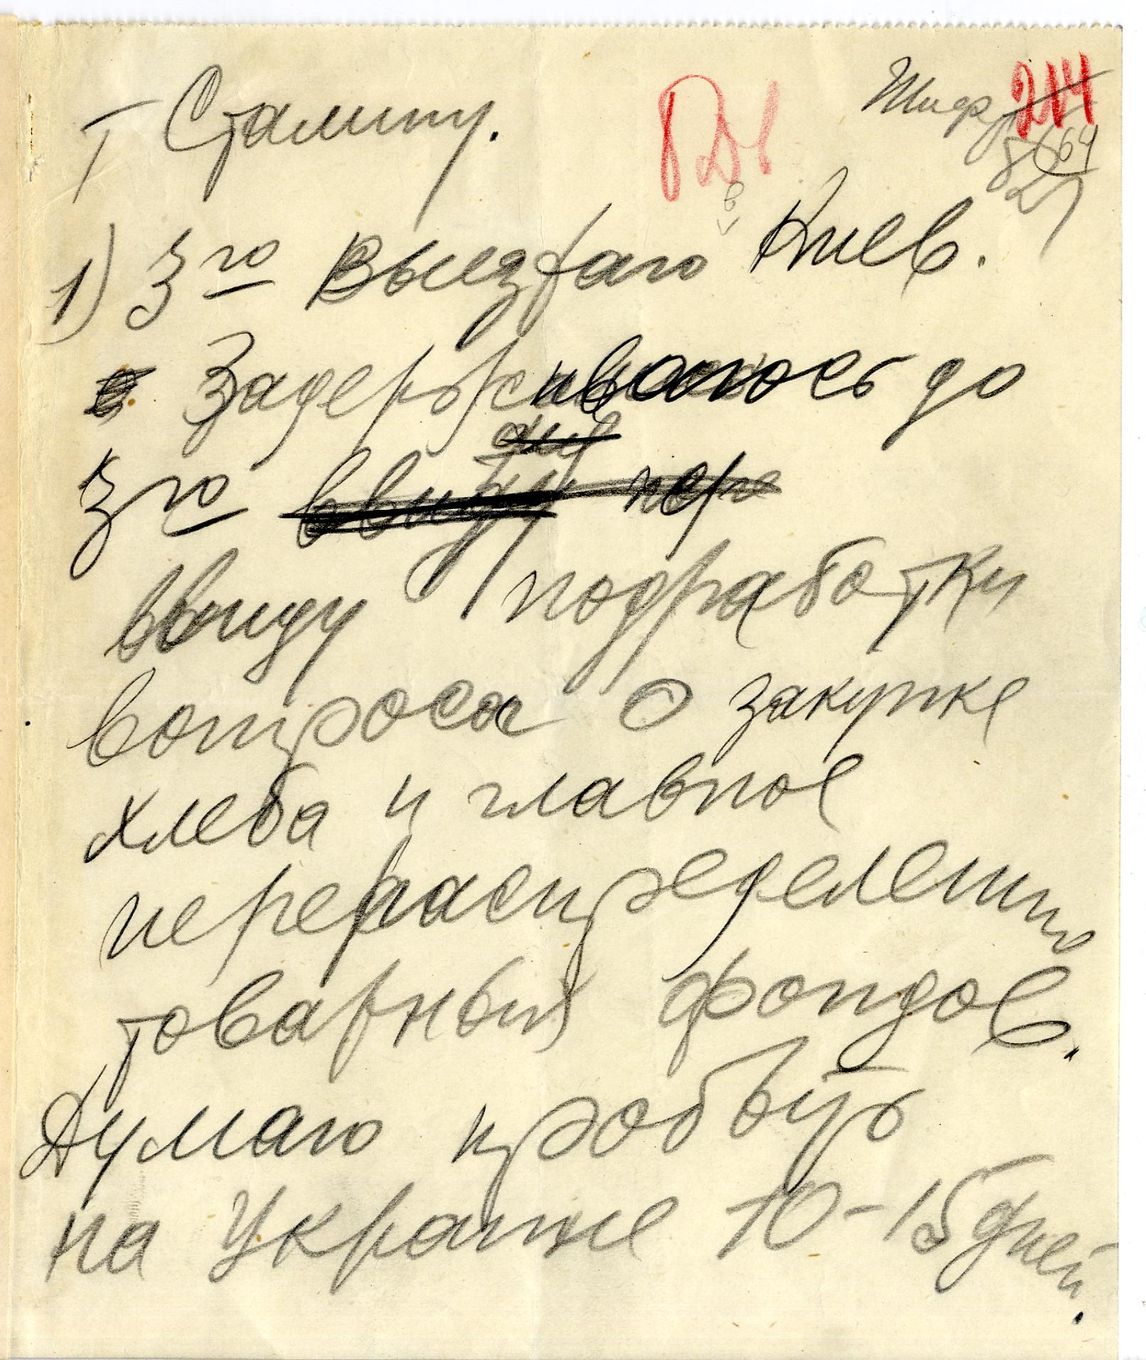 Шифр 214
Т Сталину.
664
827
1) 3го выезжаю в Киев.
Задерживаюсь до
3го ввиду пере
ввиду подработки
вопроса о закупке
хлеба и главное
перераспределению
товарных фондов.
Думаю пробыть
на Украине 10-15 дней.